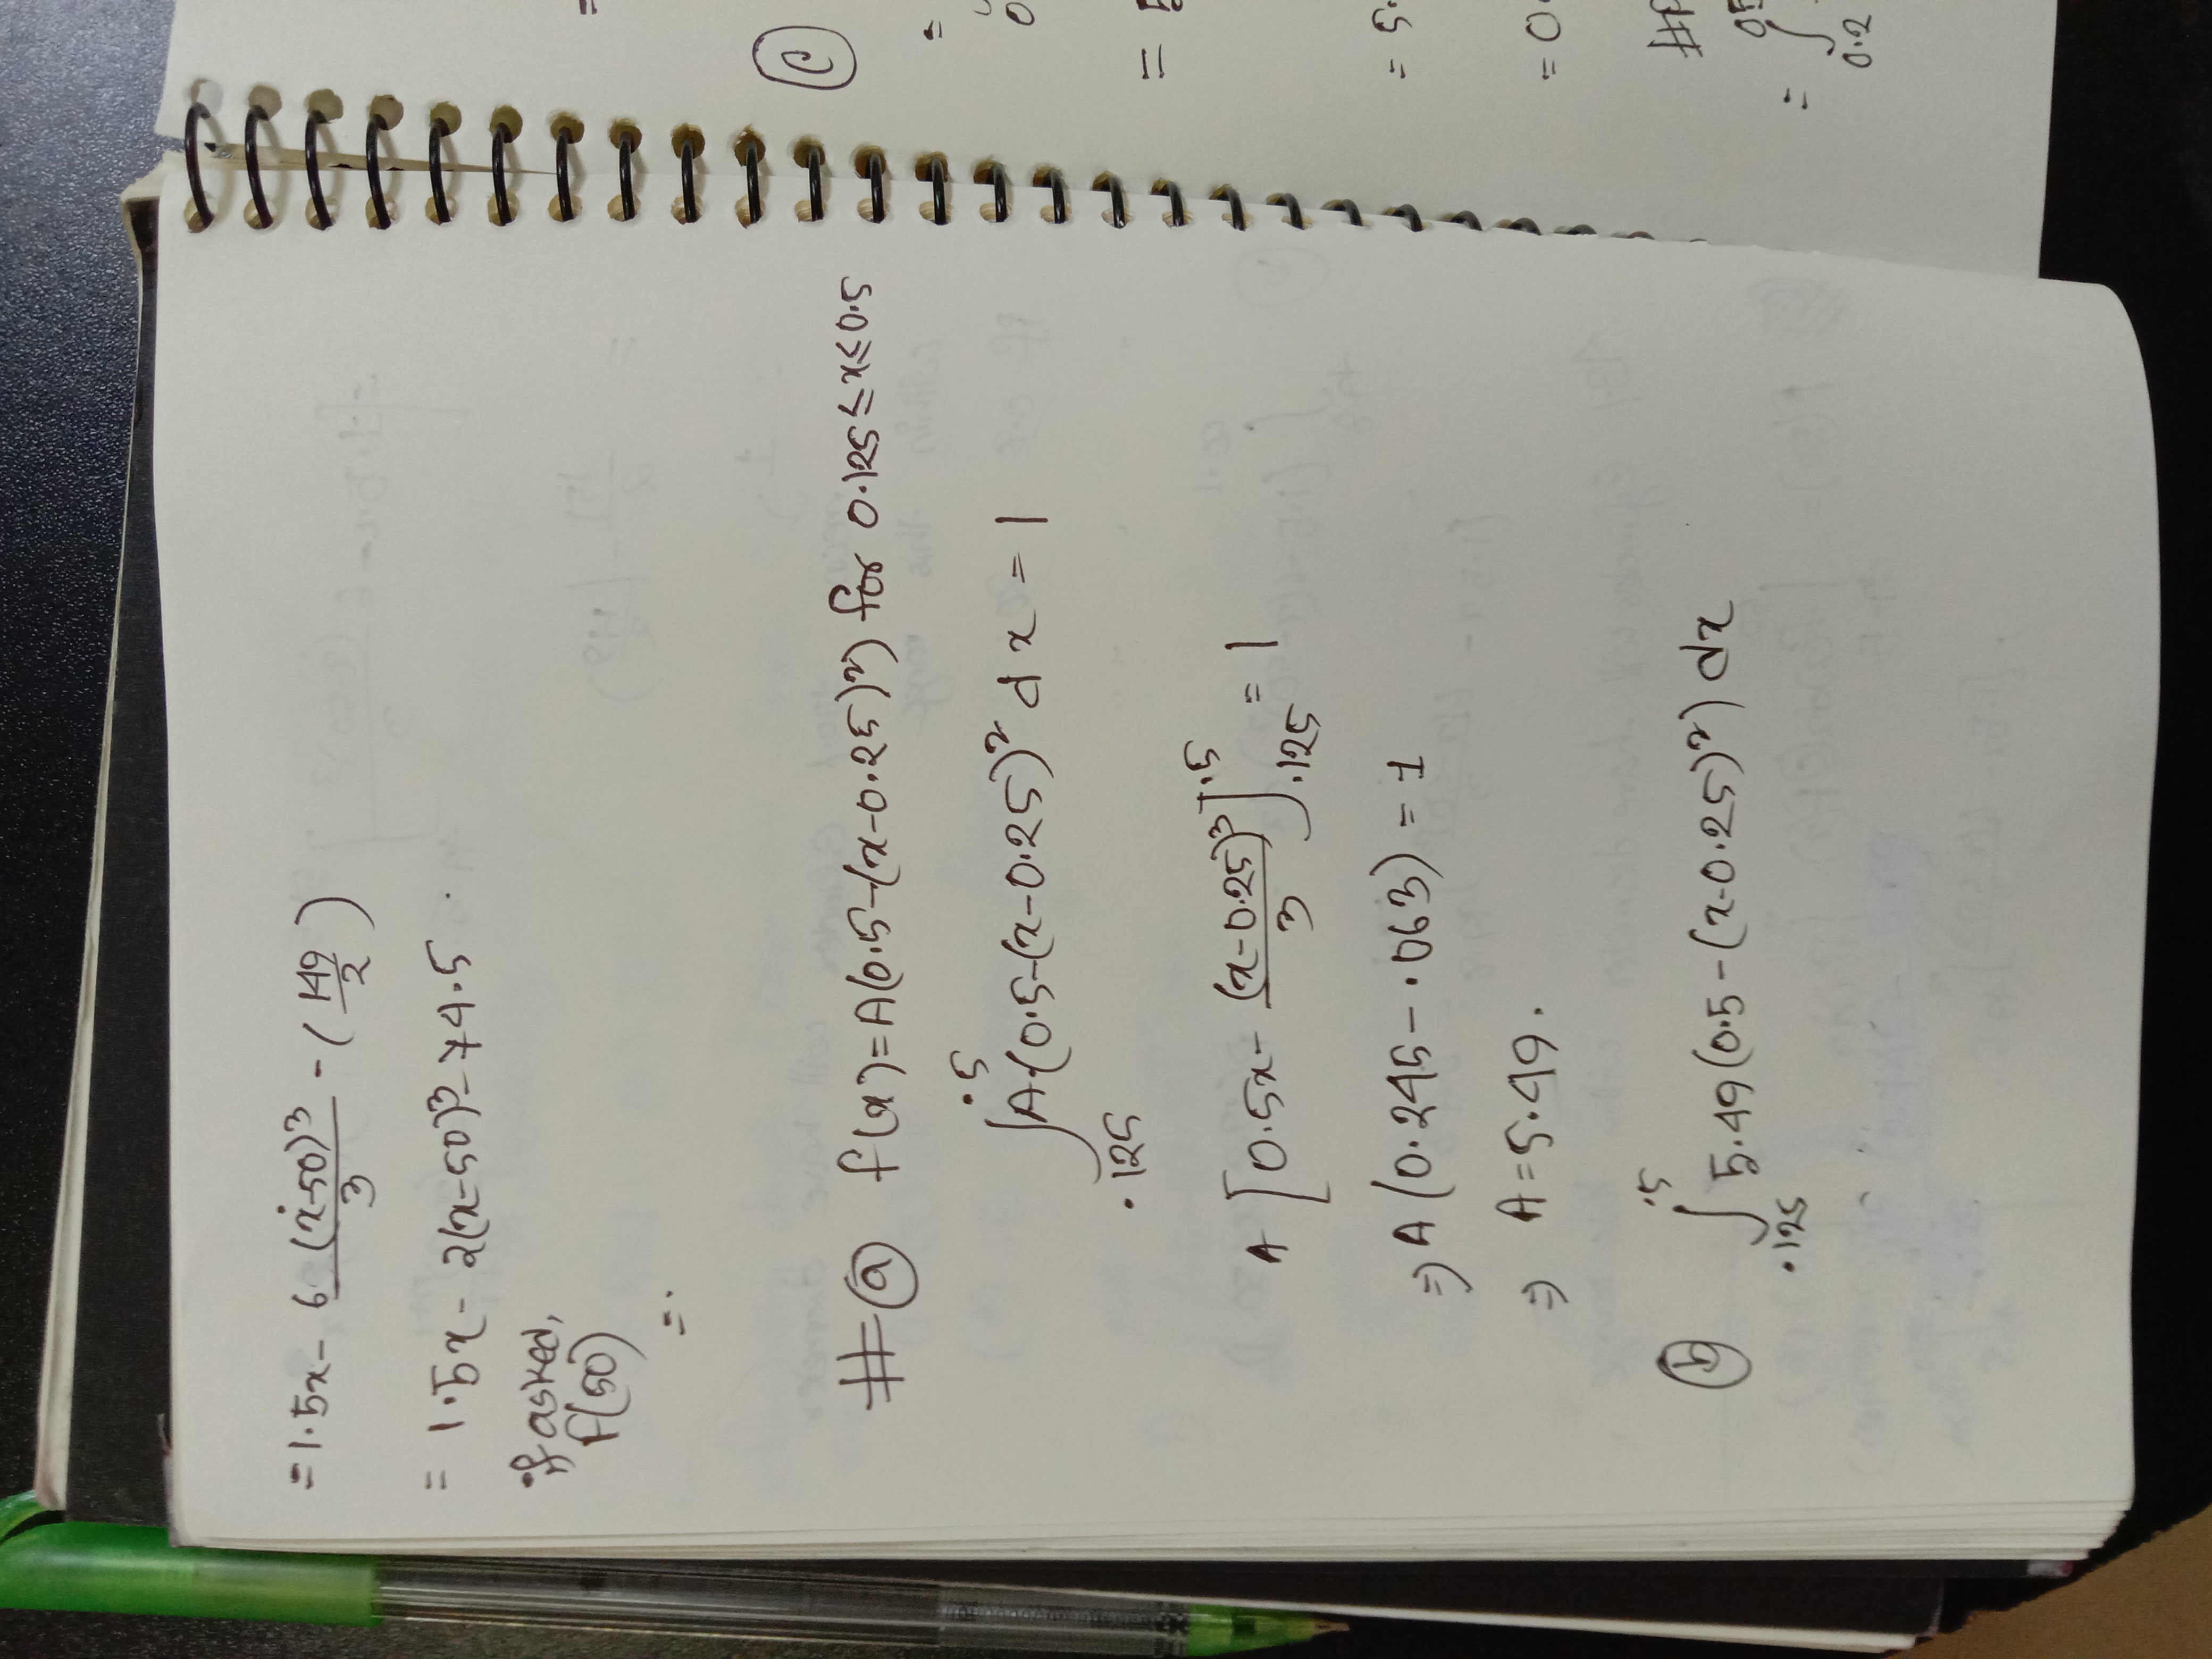 = 1.5x - 6 (x-50)³/3 - (149/2)
= 1.5x - 2(x-50)³ - 74.5
if asked,
F(50)
=.
# (a) f(x) = A(0.5-(x-0.25)²) for 0.125 ≤ x ≤ 0.5
∫.125^.5 A(0.5-(x-0.25)² dx = 1
A [0.5x - (x-0.25)³/3].125^.5 = 1
⇒ A (0.245 - .063) = 1
⇒ A = 5.49.
(b) ∫.125^.5 5.49 (0.5 - (x-0.25)²) dx
(c)
=
= 5.
= 0.
#
= ∫0.2